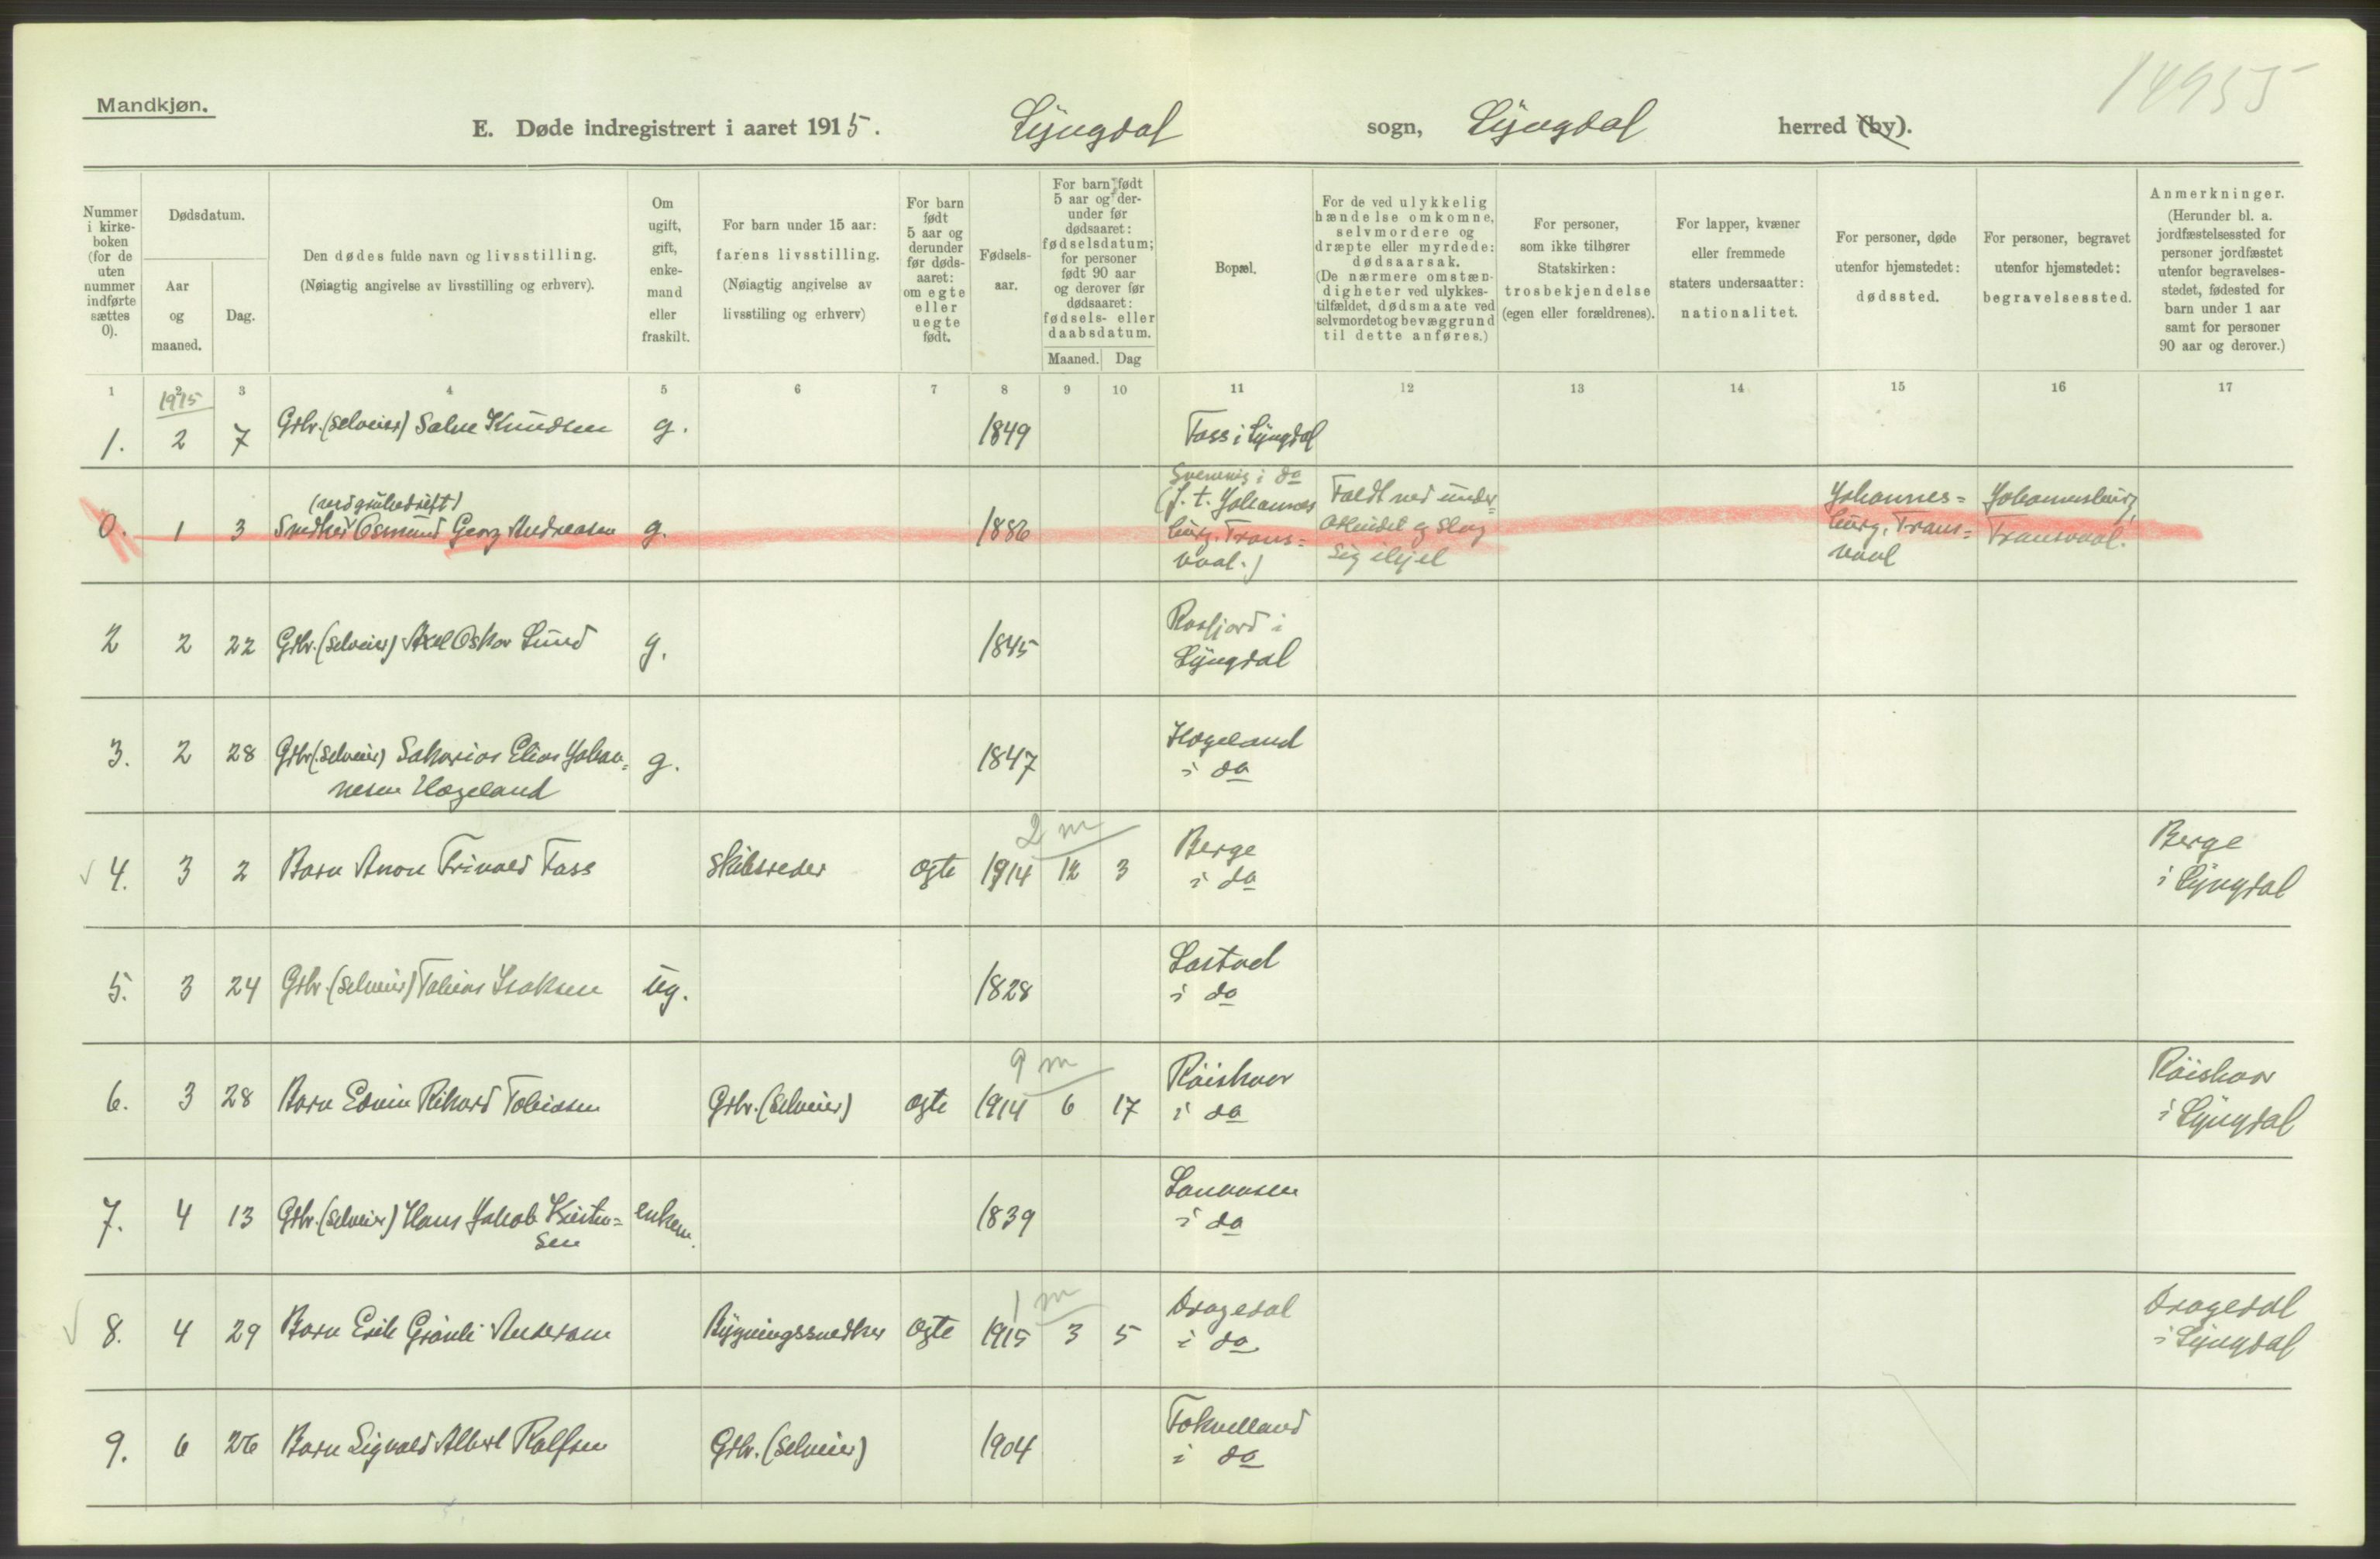 14955
Mandkjøn.
E. Døde indregistrert i aaret 1915. Lyngdal sogn, Lyngdal herred (by).
Nummer i kirke-boken (for de uten nummer indførte sættes 0).
Dødsdatum.
Aar og maaned.
Dag.
Den dødes fulde navn og livsstilling.
(Nøiagtig angivelse av livsstilling og erhverv).
Om ugift, gift, enke-mand eller fraskilt.
For barn under 15 aar:
farens livsstilling.
(Nøiagtig angivelse av
livsstiling og erhverv)
For barn født 5 aar og derunder før døds-aaret: om egte eller uegte født.
Fødsels-aar.
For barn født 5 aar og der-under før dødsaaret: fødselsdatum; for personer født 90 aar og derover før dødsaaret: fødsels- eller daabsdatum.
Maaned. Dag
Bopæl.
For de ved ulykkelig hændelse omkomne, selvmordere og dræpte eller myrdede: dødsaarsak.
(De nærmere omstæn-digheter ved ulykkes-tilfældet, dødsmaate ved selvmordet og bevæggrund til dette anføres.)
For personer, som ikke tilhører Statskirken: trosbekjendelse (egen eller forældrenes).
For lapper, kvæner eller fremmede staters undersaatter: nationalitet.
For personer, døde utenfor hjemstedet: dødssted.
For personer, begravet utenfor hjemstedet: begravelsessted.
Anmerkninger.
(Herunder bl. a. jordfæstelsessted for personer jordfæstet utenfor begravelses-stedet, fødested for barn under 1 aar samt for personer 90 aar og derover.)
1 2 3 4 5 6 7 8 9 10 11 12 13 14 15 16 17
1915
1. 2 7 Grbr. (selveier) Salve Knudsen g. 1849 Foss i Lyngdal
(ved grubedrift)
0. 1 3 Snedker Osmund Georg Andreasen g. 1886
i do
(f. t. Johannes
burg, Trans=
vaal.)
Faldt ned under
arbeidet og slog
sig ihjel
Johannes=
burg, Trans=
vaal
Johannesburg,
Transvaal.
2 2 22 Grbr. (selveier) Axel Oskar Lund g. 1845 Rosfjord i
Lyngdal
3. 2 28 Grbr. (selveier) Sakarias Elias Johan=
nesen Hægeland g. 1847 Hægeland
i do
2 m
4. 3 2 Barn Anon Trivald Foss Skibsreder egte 1914 12 3 Berge
i do
Berge
i Lyngdal
5. 3 24 Grbr. (selveier) Tobias Isaksen ug. 1828 Lastad
i do
9 m
6. 3 28 Barn Edvin Rikard Tobiasen Grbr. (selveier) egte 1914 6 17 Röiskaar
i do
Röiskaar
i Lyngdal
7. 4 13 Grbr. (selveier) Hans Jakob Kristen=
sen enkem. 1839
i do
1 m
8. 4 29 Barn Erik Grönli Andersen Bygningssnedker egte 1915 3 5 Dragedal
i do
Dragedal
i Lyngdal
9. 6 26 Barn Sigvald Albert Rolfsen Grbr. (selveier) 1904
i do